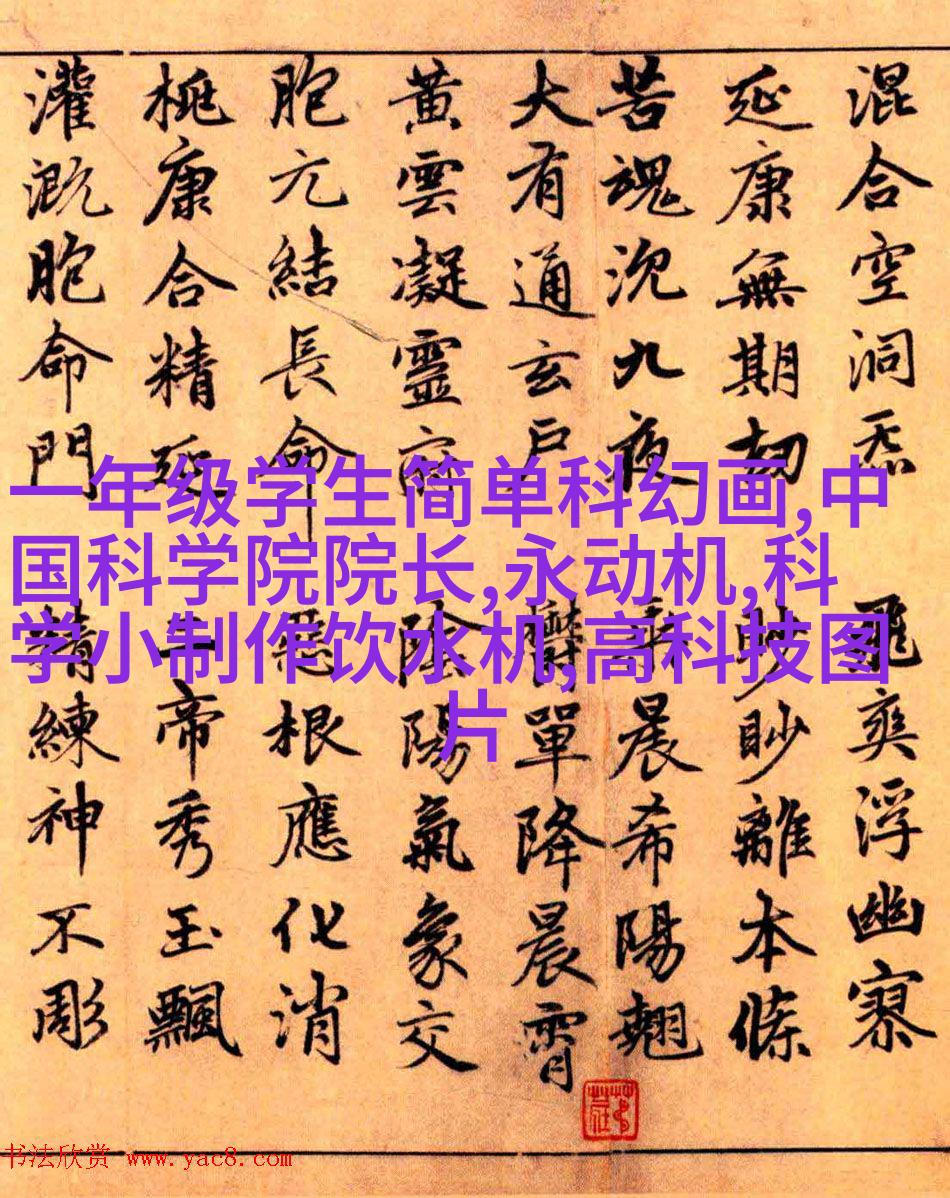 混合空洞炁 飛爽浮幽寥
延康無期劫 眇眇離本條
苦魂沈九夜 晨希陽翹
大有通玄戶 鬱單降晨霄
黃雲凝靈府 陰陽氣象交
胞元結長命 根應化消
桃康合精延 帝秀玉飄
灌溉胞命門 精練神不彫
一年级学生简单科幻画,中
国科学院院长,永动机,科
学小制作饮水机,高科技图
片
书法欣赏 www.yac8.com